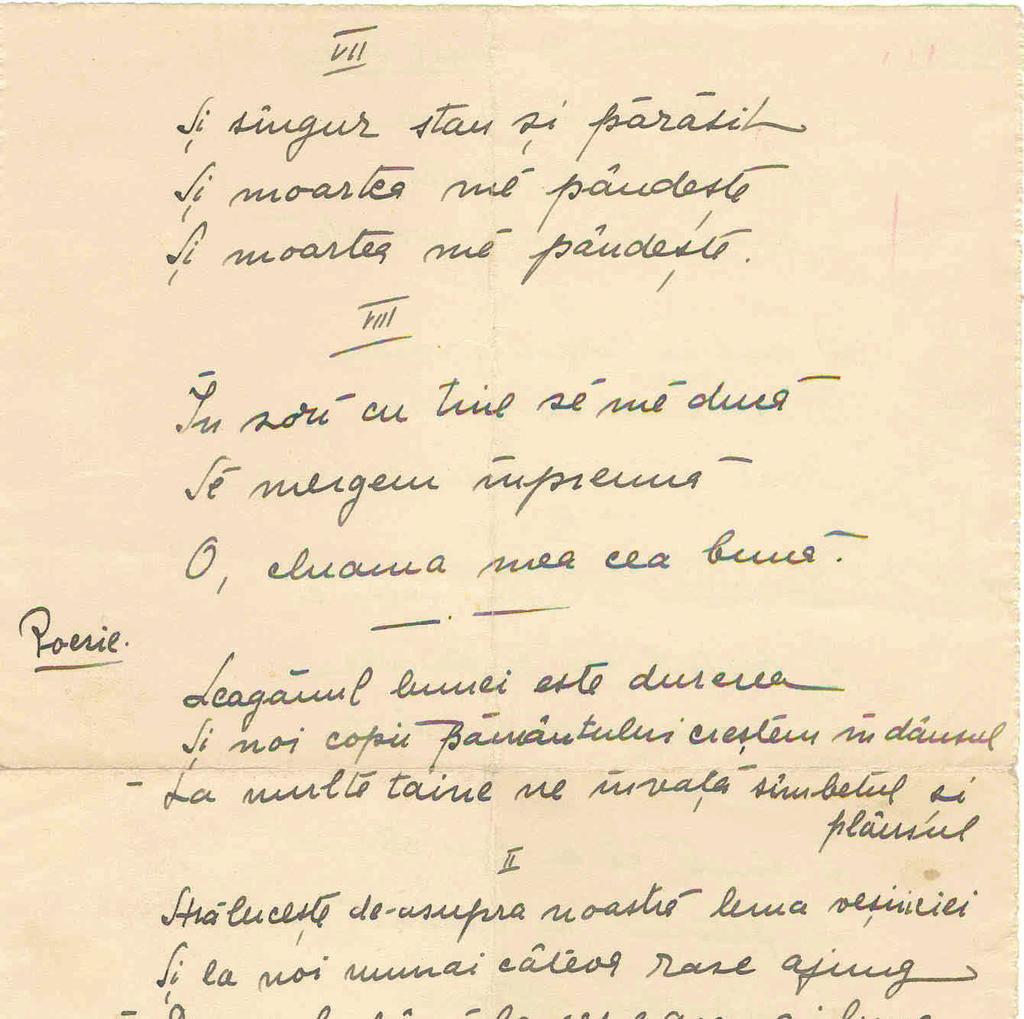 VII
Și singur stau și părăsit
Și moartea mĕ pândește
Și moartea mĕ pândește.
VIII
În zori cu tine sĕ mĕ ducă
Sĕ mergem împreună
O, mea cea bună.
Poesie.
Leagănul lumei este durerea
Și noi copii Pământului creștem în dânsul
- La multe taine ne învață simbetul și
plânsul
II
Strălucește de-asupra noastră luna veșniciei
Și la noi numai câteva rase ajung